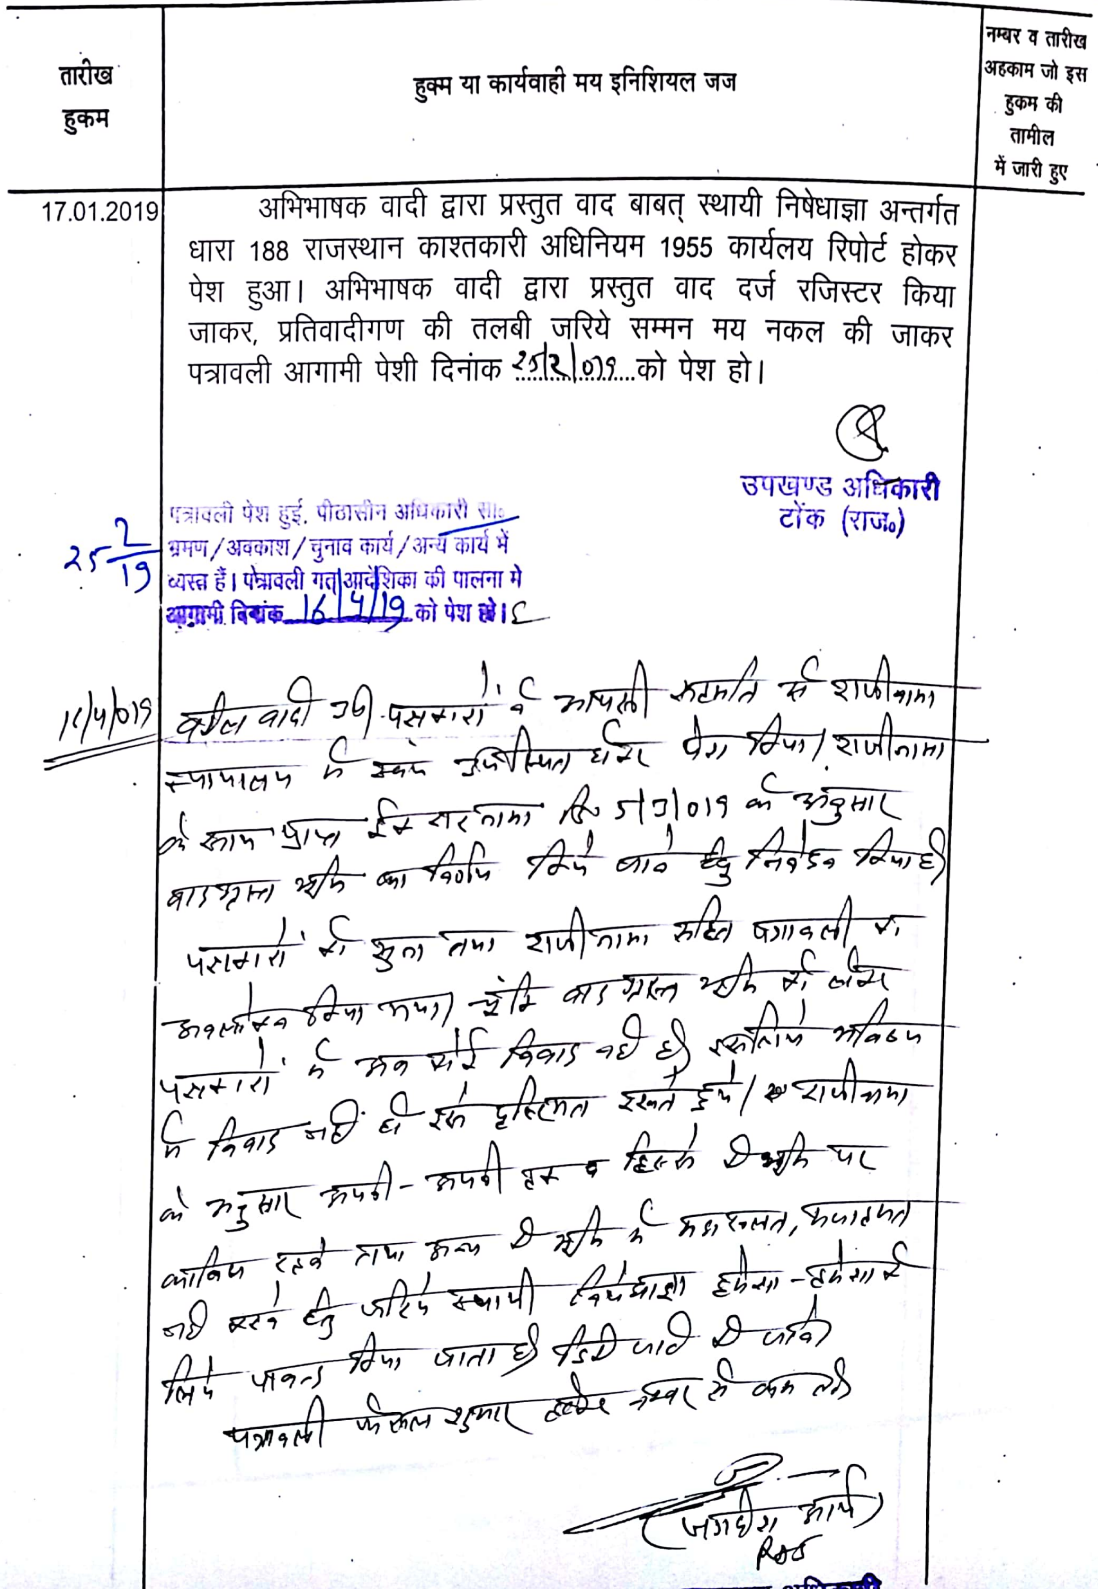 तारीख
हुकम
हुक्म या कार्यवाही मय इनिशियल जज
नम्बर व तारीख
अहकाम जो इस
हुकम की
तामील
में जारी हुए
17.01.2019
अभिभाषक वादी द्वारा प्रस्तुत वाद बाबत् स्थायी निषेधाज्ञा अन्तर्गत
धारा 188 राजस्थान काश्तकारी अधिनियम 1955 कार्यलय रिपोर्ट होकर
पेश हुआ। अभिभाषक वादी द्वारा प्रस्तुत वाद दर्ज रजिस्टर किया
जाकर, प्रतिवादीगण की तलबी जरिये सम्मन मय नकल की जाकर
पत्रावली आगामी पेशी दिनांक 25/2/019 को पेश हो।
उपखण्ड अधिकारी
टोंक (राज०)
25 2/19
पत्रावली पेश हुई, पीठासीन अधिकारी सा०
भ्रमण/अवकाश/चुनाव कार्य/अन्य कार्य में
व्यस्त हैं। पत्रावली गत आदेशिका की पालना मे
आगामी दिनांक 16/4/19 को पेश हो।
16/4/019
वकील वादी उप. पक्षकारों ने आपसी सहमति से राजीनामा
न्यायालय में स्वयं उपस्थित होकर पेश किया। राजीनामा
के साथ प्राप्त इकरारनामा दि० 5/3/019 के अनुसार
वादग्रस्त भूमि का निर्णय किये जाने हेतु निवेदन किया है।
पक्षकारों को सुना तथा राजीनामा सहित पत्रावली का
अवलोकन किया गया। चूंकि वादग्रस्त भूमि को लेकर
पक्षकारों में अब कोई विवाद नही है। इसलिये भविष्य
में विवाद नहीं हो इसे दृष्टिगत रखते हुये। राजीनामा
के अनुसार अपनी-अपनी हक व हिस्से की भूमि पर
काबिज रहने तथा अन्य की भूमि में मदाखलत, मजाहमत
नही करने हेतु जरिये स्थायी निषेधाज्ञा हमेशा-हमेशा के
लिये पाबन्द किया जाता है। डिक्री जारी की जावे।
पत्रावली फैसल शुमार होकर नम्बर से कम हो।
(जगदीश आर्य)
RAS